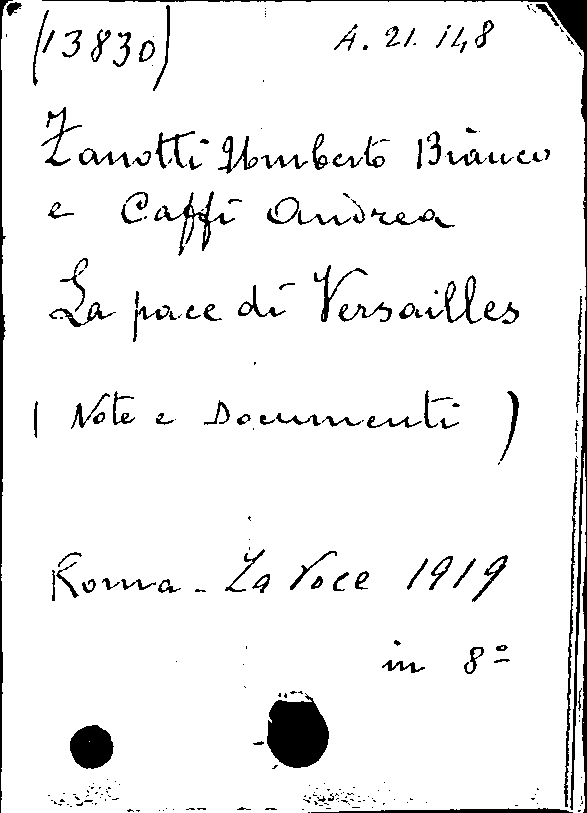 (13830) A. 21. 148
Zanotti Umberto Bianco
e Caffi Andrea
La pace di Versailles
( Note e Documenti )
Roma - La Voce 1919
in 8º